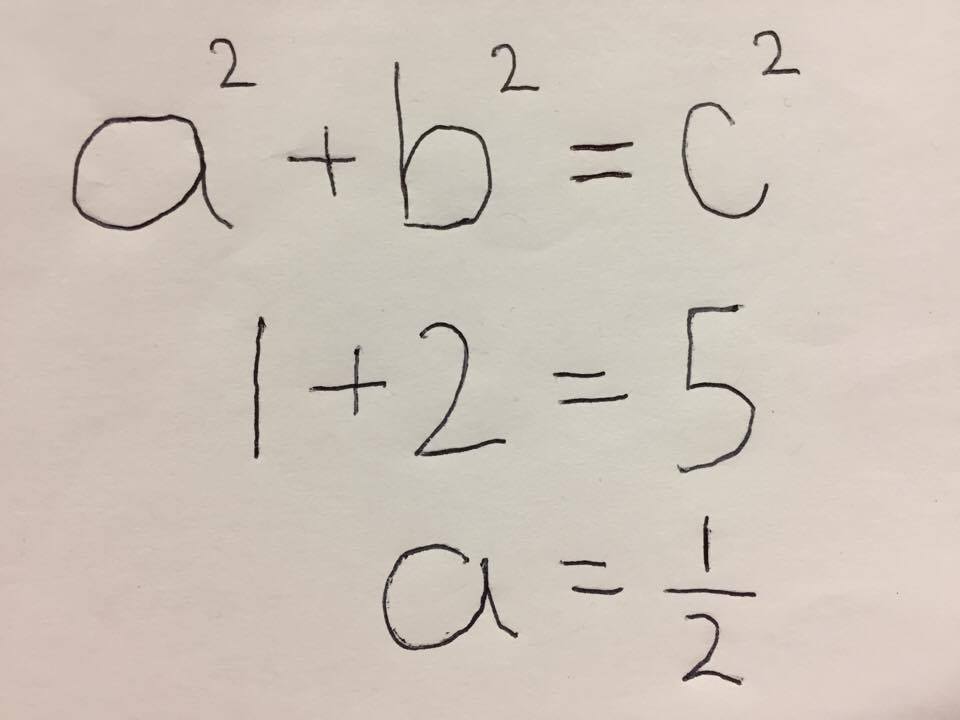 a² + b² = c²
1 + 2 = 5
a = 1/2